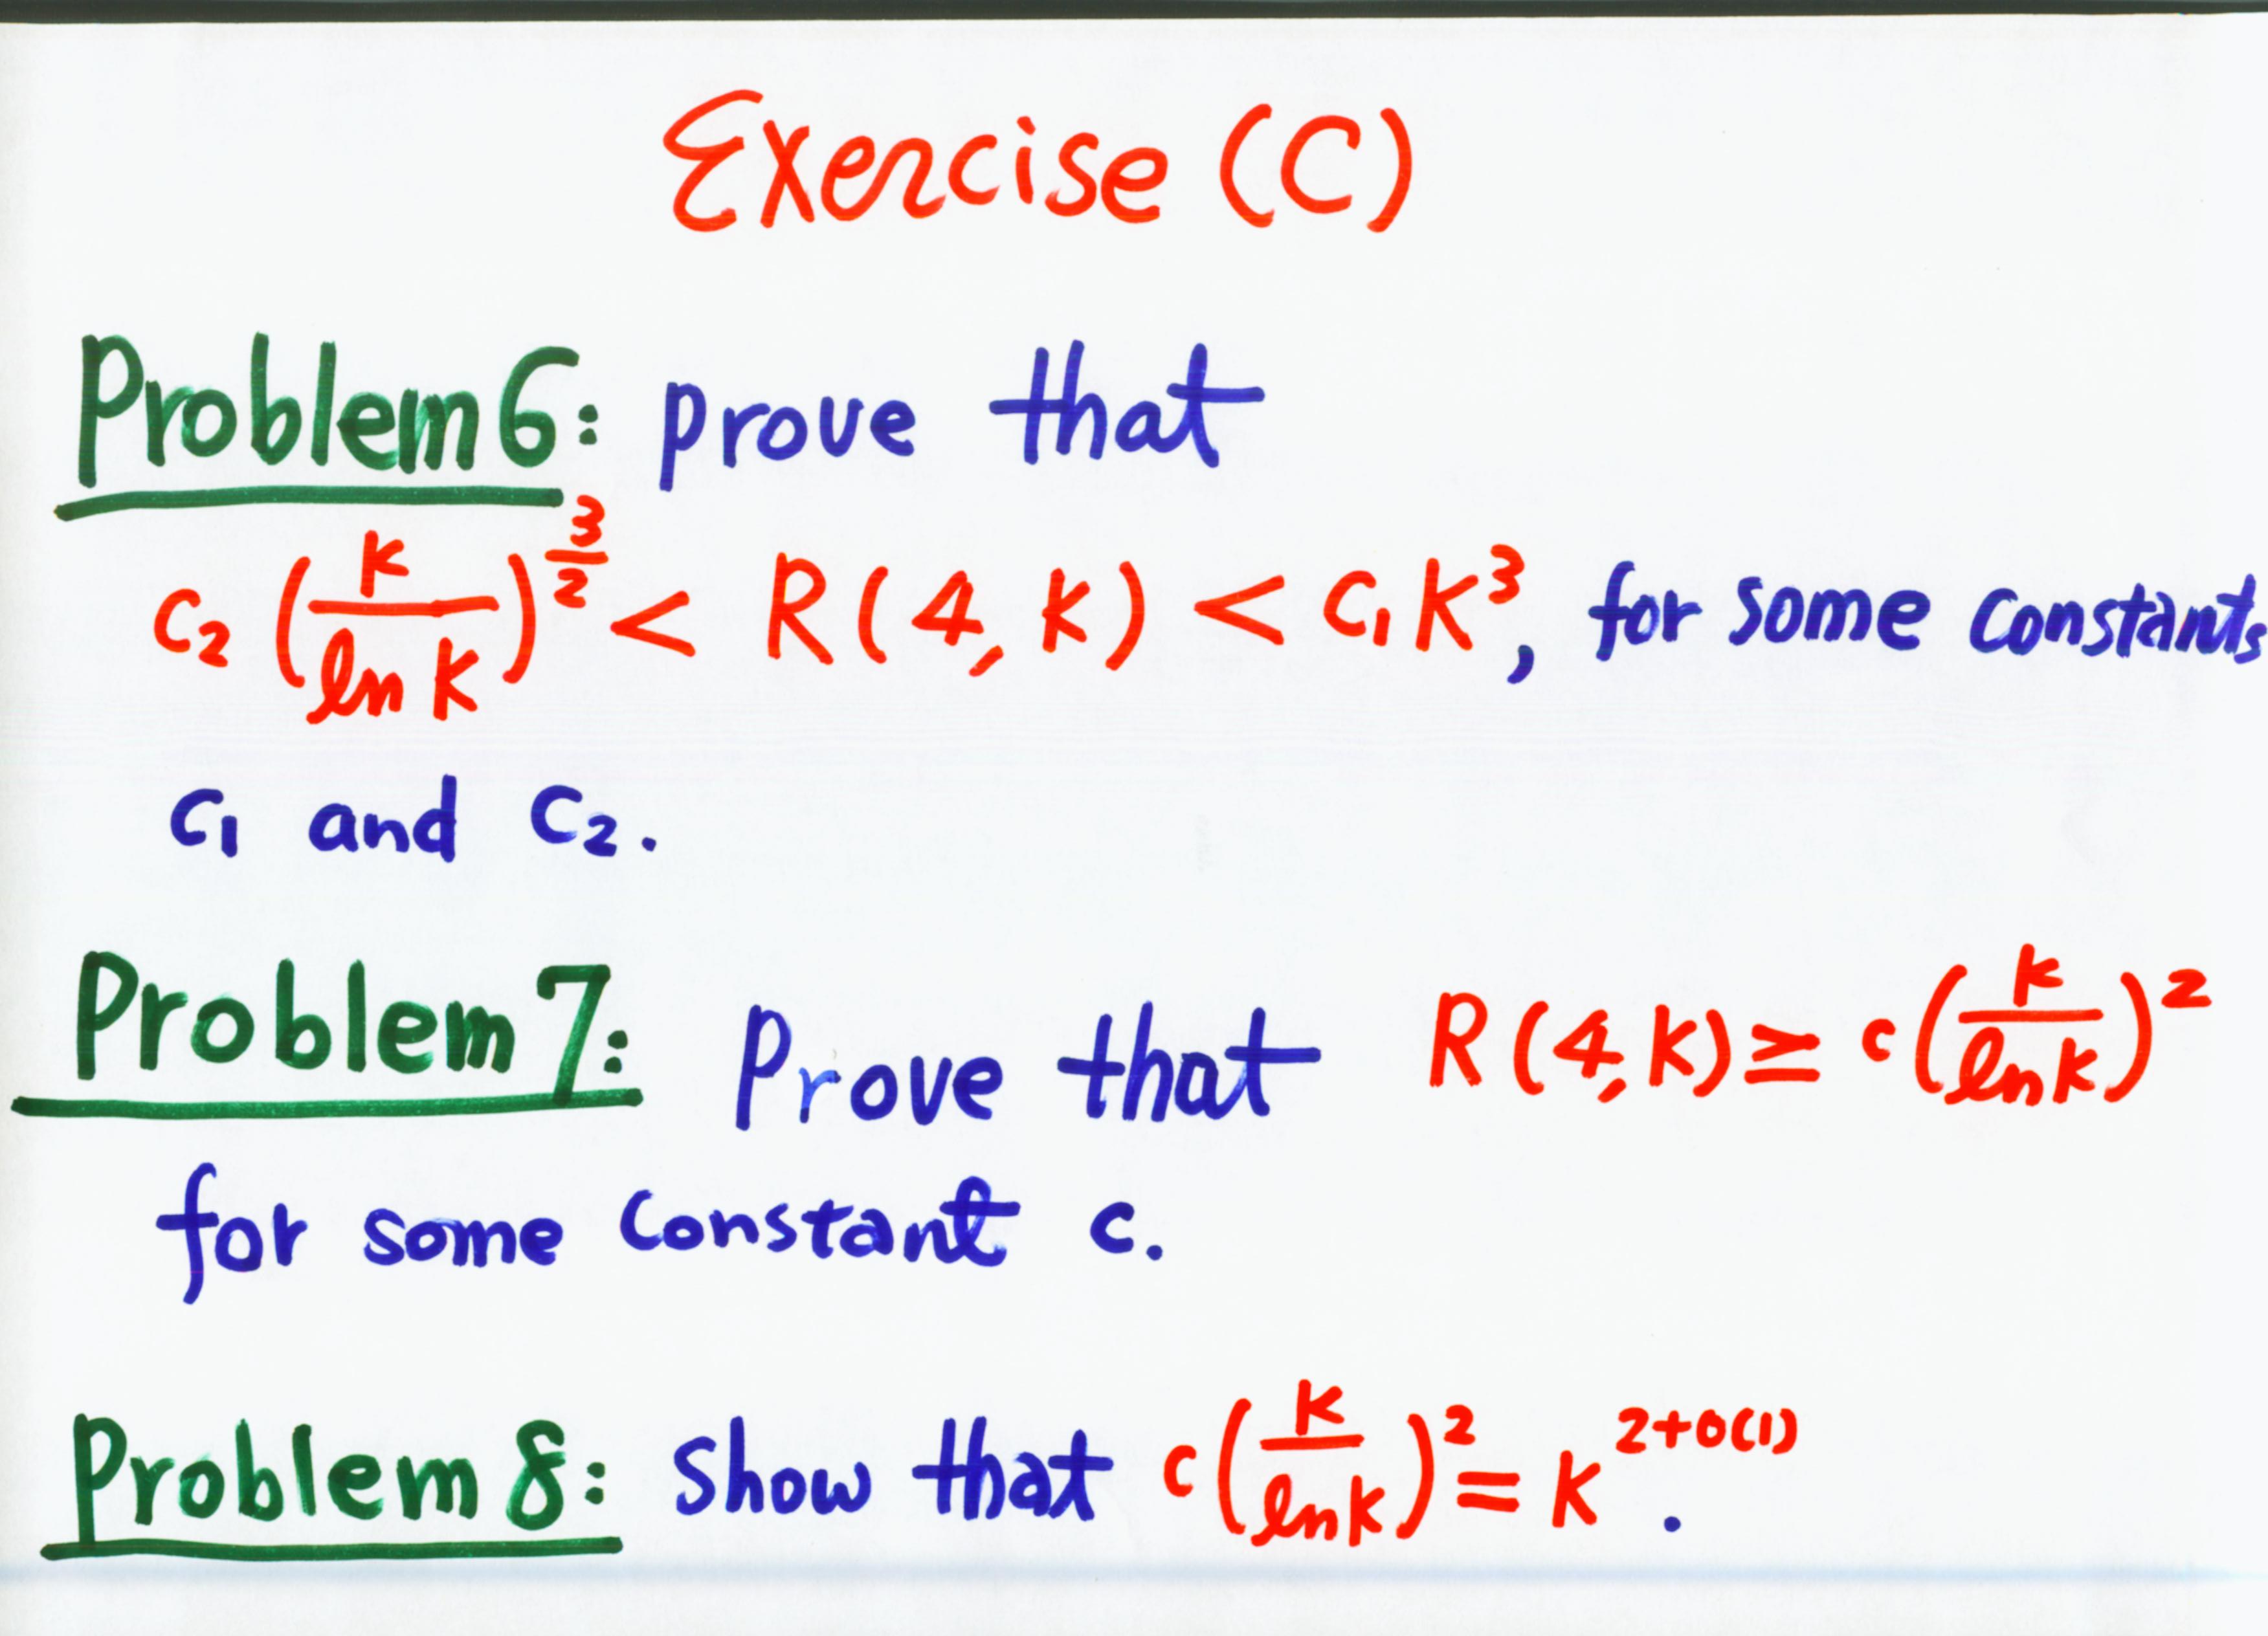 Exercise (C)
Problem 6: prove that
c₂ (k/ln k)^(3/2) < R(4, k) < c₁ k³, for some constants
c₁ and c₂.
Problem 7: Prove that R(4, k) ≥ c(k/ln k)²
for some constant c.
Problem 8: show that c(k/ln k)² = k^(2+o(1)).